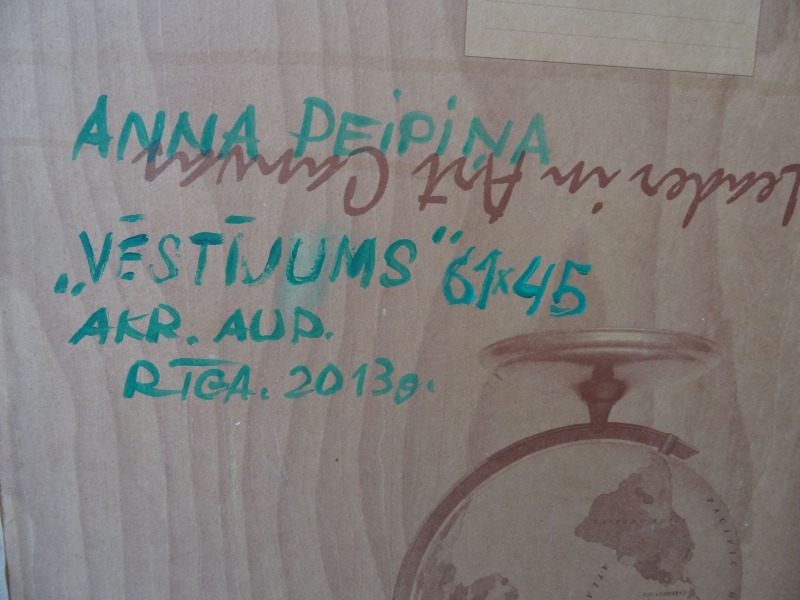 ANNA PEIPIŅA
Leader in Art Canvas
„VĒSTĪJUMS“ 61x45
AKR. AUD.
RĪGA. 2013g.
PACIFIC
ATLA